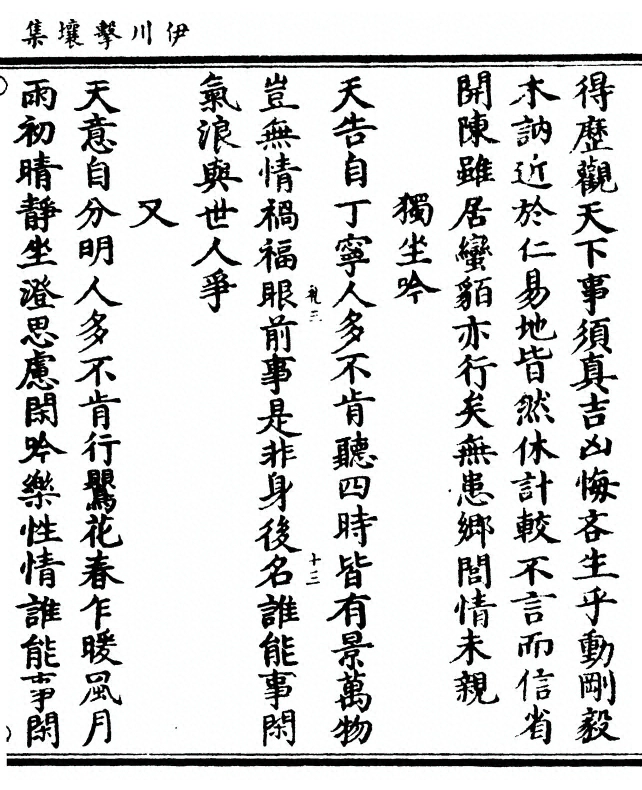 伊川擊壤集
得歷觀天下事須真吉凶悔吝生乎動剛毅
木訥近於仁易地皆然休計較不言而信省
開陳雖居蠻貊亦行矣無患鄉閭情未親
獨坐吟
天告自丁寧人多不肯聽四時皆有景萬物
豈無情禍福眼前事是非身後名誰能事閑
氣浪與世人爭
又
天意自分明人多不肯行鸎花春乍暖風月
雨初晴靜坐澄思慮閑吟樂性情誰能事閑
十三